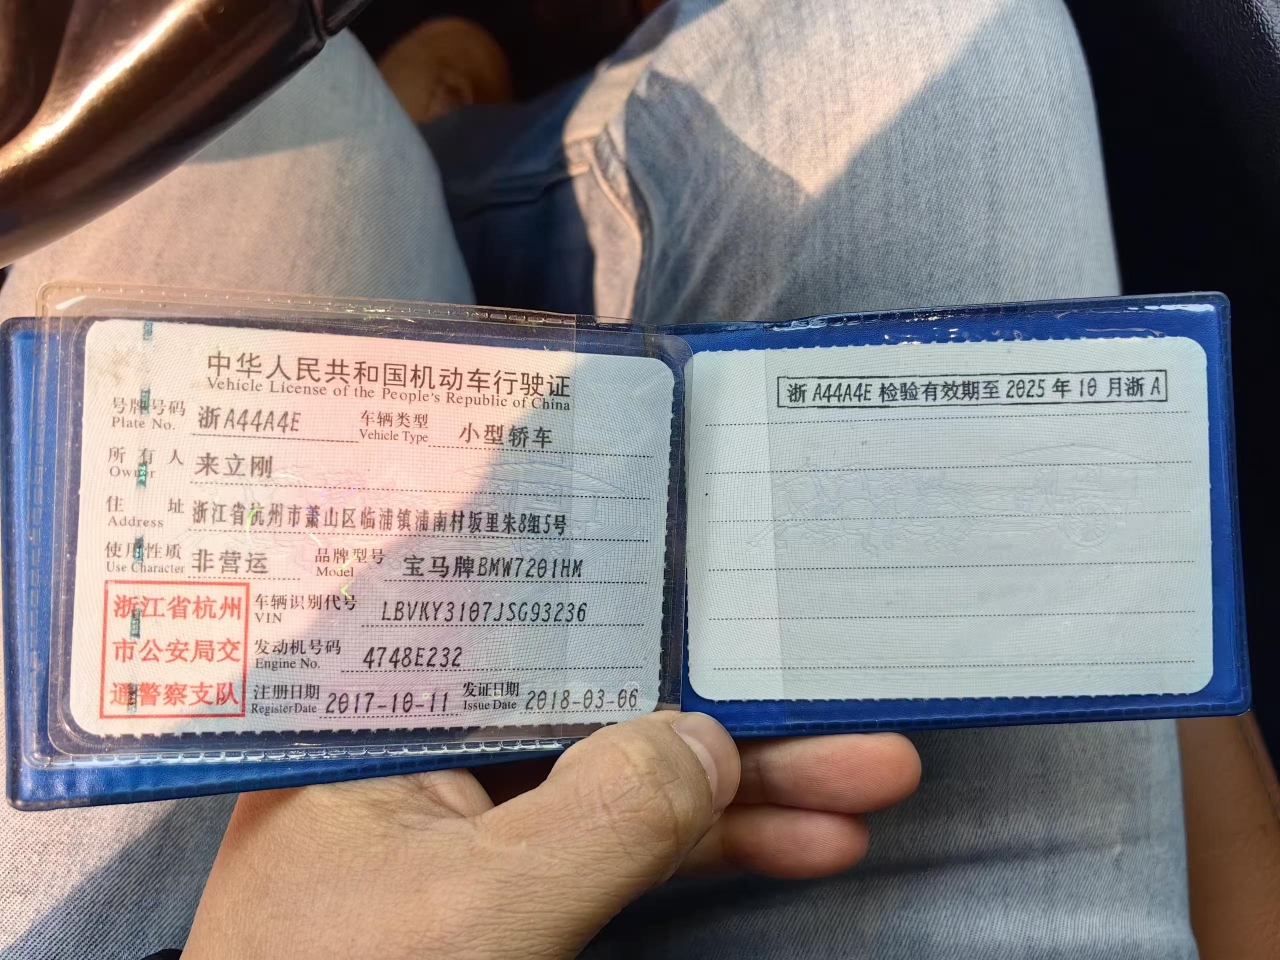 中华人民共和国机动车行驶证
Vehicle License of the People's Republic of China
号牌号码 浙A44A4E 车辆类型 小型轿车
Plate No. Vehicle Type
所有人 来立刚
Owner
住址 浙江省杭州市萧山区临浦镇浦南村坂里朱8组5号
Address
使用性质 非营运 品牌型号 宝马牌BMW7201HM
Use Character Model
浙江省杭州
市公安局交
通警察支队
车辆识别代号 LBVKY3107JSG93236
VIN
发动机号码 4748E232
Engine No.
注册日期 2017-10-11 发证日期 2018-03-06
Register Date Issue Date
浙A44A4E 检验有效期至 2025 年 10 月浙 A